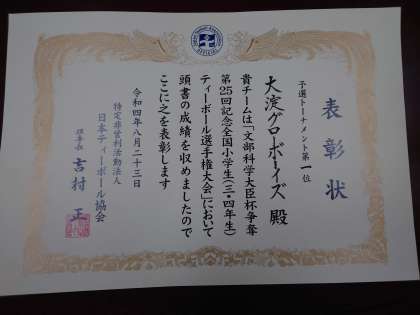 表彰状
予選トーナメント第一位
大淀グローボーイズ 殿
貴チームは「文部科学大臣杯争奪
第25回記念全国小学生(三・四年生)
ティーボール選手権大会」において
頭書の成績を収めましたので
ここに之を表彰します
令和四年八月二十三日
特定非営利活動法人
日本ティーボール協会
理事長 吉村 正